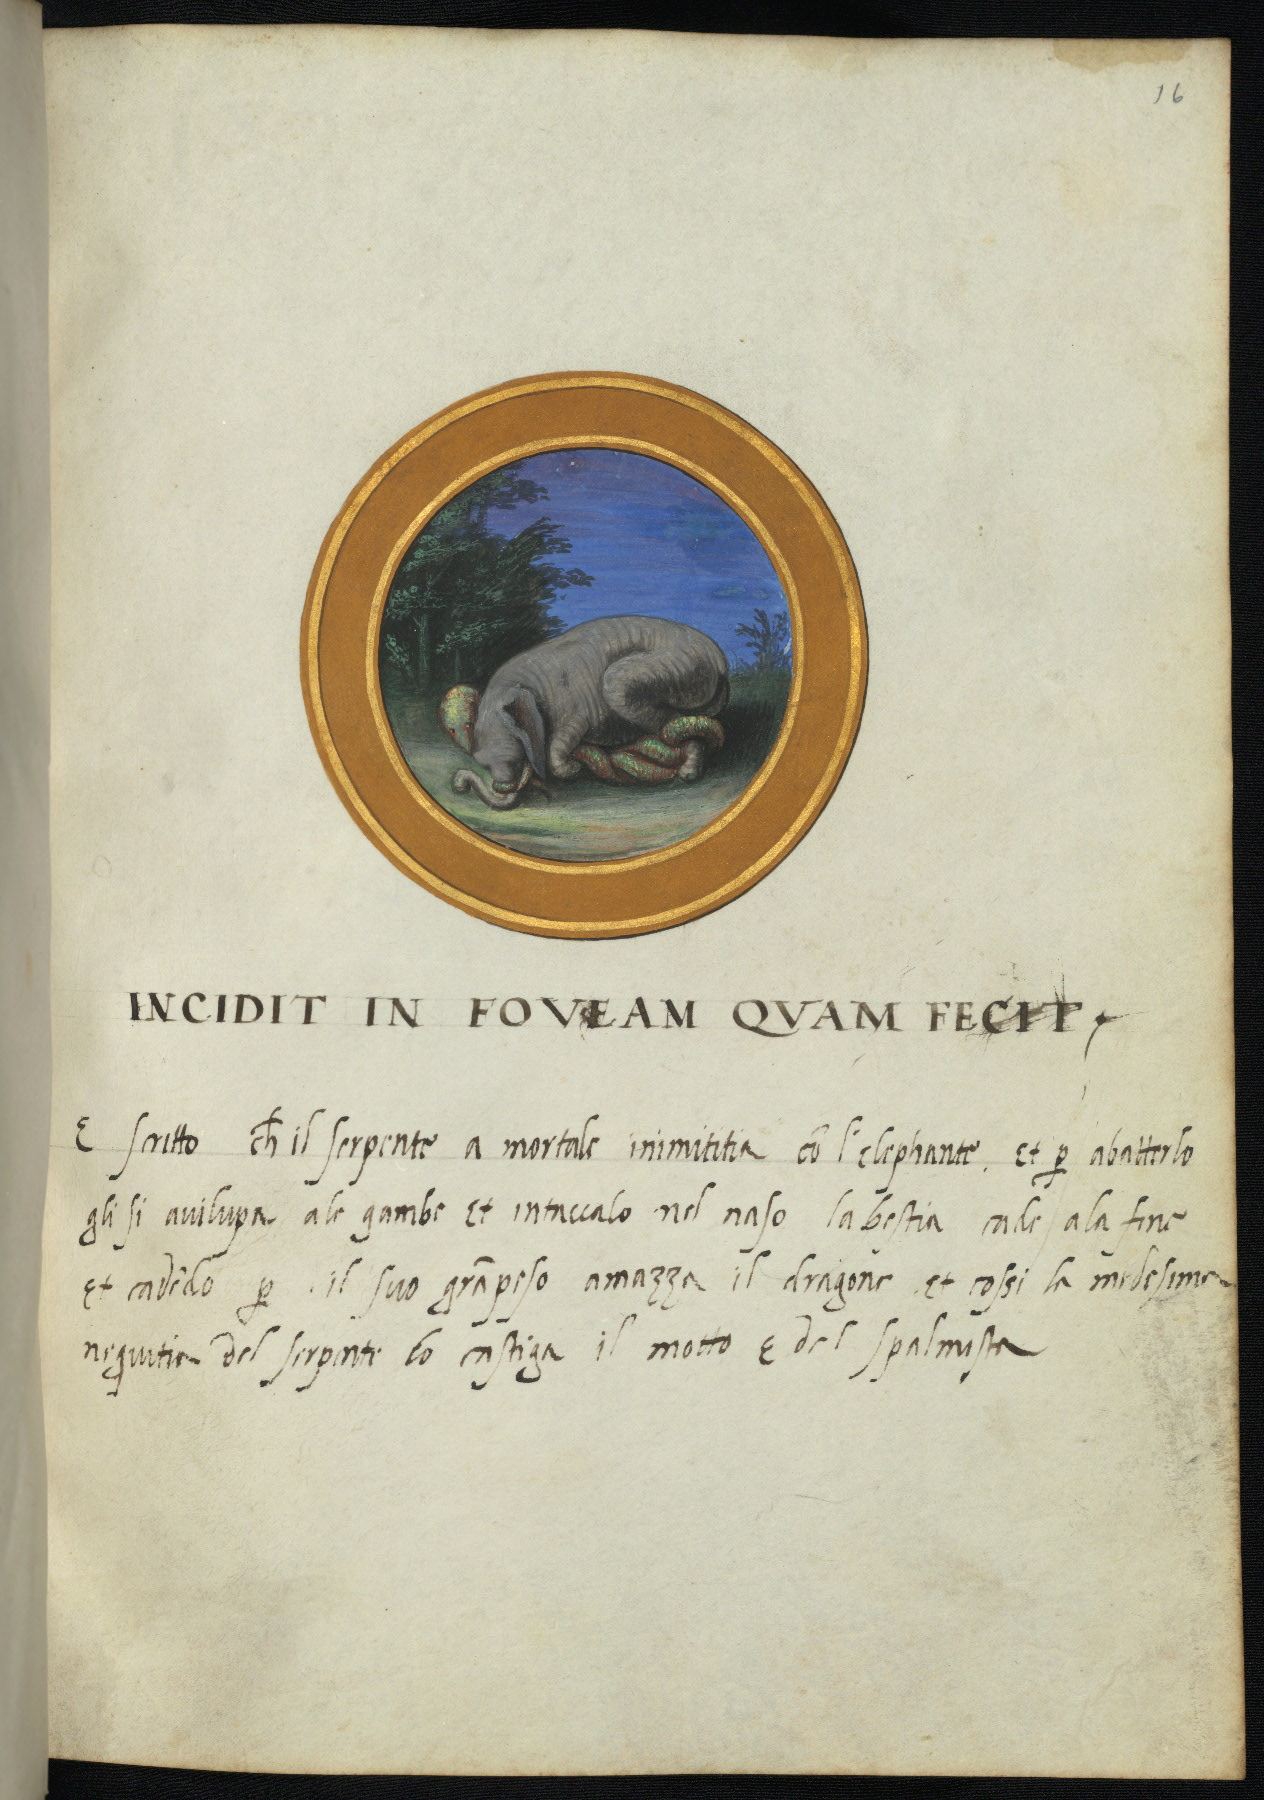 16
INCIDIT IN FOVEAM QVAM FECIT,
E scritto ch̄ il serpente a mortale inimititia cō l'elephante. et p̱ abatterlo
gli si avilupa ale gambe et intaccalo nel naso la bestia cade ala fine
et cadēdo p̱ il suo grā peso amazza il dragone et cossi la medesima
nequitia del serpēte lo castiga il motto e del spalmista